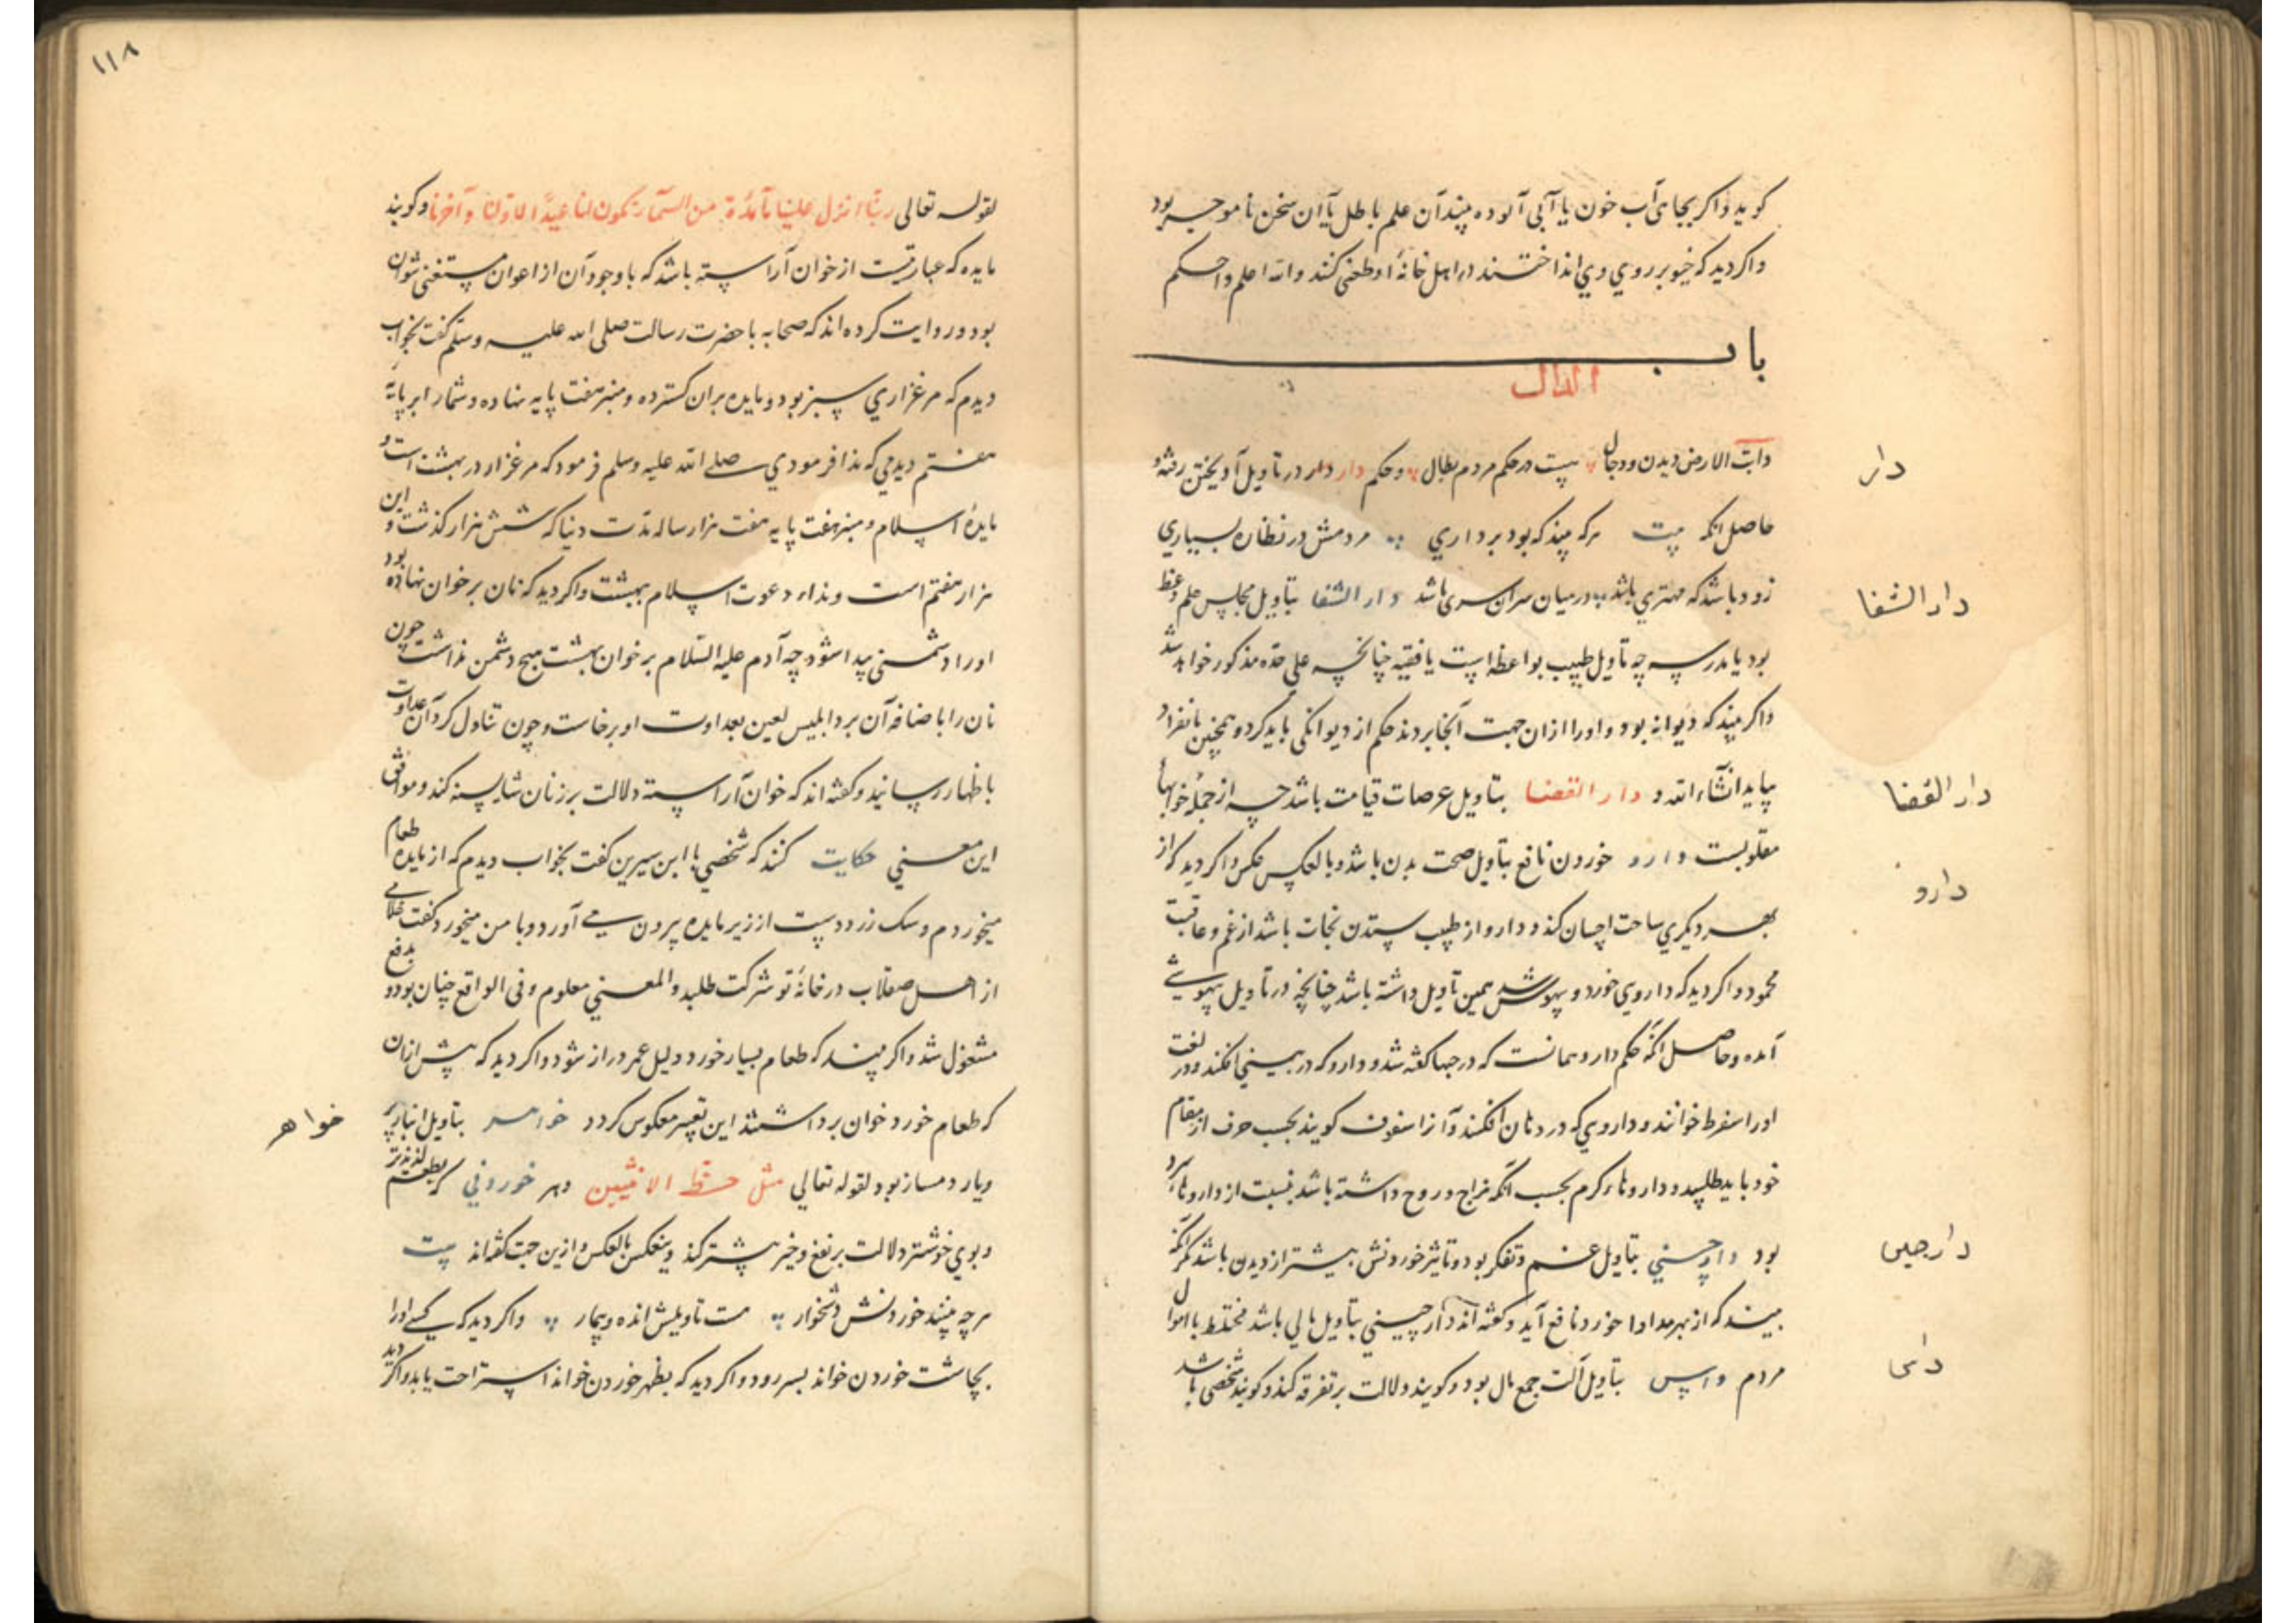 کوید واکر بجای آب خون یا آبی آلوده بیند آن علم باطل یا آن سخن نا موجه بود
واکر دید که خیو بر روی وی انداختند در اهل خانهٔ او طعن کنند والله اعلم واحکم
باب
الدال
دابة الارض دیدن ودجال نیست در حکم مردم بطال وحکم دار در تاویل آویختن رفته و
دار
حاصل آنکه بیت هرکه بیند که بود برداری مردمش در نظاره بسیاری
زود باشد که مهتری باشد در میان سران سری باشد دار الشفا بتاویل مجلس علم وعظ
دار الشفا
بود یا مدرسه چه تاویل طبیب بواعظ است یا فقیه چنانچه علی حده مذکور خواهد شد
واکر بیند که دیوانه بود واورا ازان جهت آنجا بردند حکم از دیوانکی باید کرد وهمچنین بانفراد
بیاید انشآء الله و دار القضا بتاویل عرصات قیامت باشد چه از جمله خوابها
دار القضا
مقلوبست دارو خوردن نافع بتاویل صحت بدن باشد وبالعکس عکس واکر دید که از
دارو
بهر دیکری ساخت احسان کند ودارو از طبیب ستدن نجات باشد از غم وعاقبت
محمود واکر دید که داروی خورد و بیهوش شد همین تاویل داشته باشد چنانچه در تاویل بیهوشی
آمده وحاصل آنکه حکم دارو همانست که در جبها کفته شد ودارو که در بینی افکنند ودر لغت
اورا سفرط خوانند وداروی که در دهان افکنند وآنرا سفوف کویند بحسب حرف از مقام
خود باید طلبید وداروهاء کرم بحسب آنکه مزاج و روح داشته باشد نسبت از داروهاء سرد
بود دارچینی بتاویل غم وتفکر بود وتاثیر خوردنش بیشتر از دیدن باشد مکر آنکه
دارچینی
بیند که از بهر مداوا خورد نافع آید وکفته اند دارچینی بتاویل مالی باشد مختلط باموال
مردم داس بتاویل آلت جمع مال بود وکویند دلالت بر تفرقه کند وکویند شخصی باشد
داس
۱۱۸
لقوله تعالی ربنا انزل علینا مآئدة من السمآء تکون لنا عیدا لاولنا وآخرنا وکویند
مایده که عبارتست از خوان آراسته باشد که با وجود آن از اعوان مستغنی شوان
بود وروایت کرده اند که صحابه با حضرت رسالت صلی الله علیه وسلم کفت بخواب
دیدم که مرغزاری سبز بود ومایده بران کسترده ومنبر هفت پایه نهاده وشمارا بر پایهٔ
هفتم دیدمی که ندا فرمودی صلی الله علیه وسلم فرمود که مرغزار در بهشت است و
مایدهٔ اسلام ومنبر هفت پایه هفت هزار ساله مدت دنیا که شش هزار کذشت و این
هزار هفتم است ونداء دعوت اسلام ببهشت واکر دید که نان بر خوان نهاده بود
اورا دشمنی پیدا شود چه آدم علیه السلام بر خوان بهشت هیچ دشمن نداشت چون
نان را با ضافه آن برد ابلیس لعین بعداوت او برخاست وچون تناول کرد آن عداوت
باظهار رسانید وکفته اند که خوان آراسته دلالت بر زنان شایسته کند وموافق
این معنی حکایت کنند که شخصی با ابن سیرین کفت بخواب دیدم که از مایده طعام
میخوردم وسک زرد دست از زیر مایده بیرون می آورد وبا من میخورد کفت غلامی
از اهل صقلاب در خانهٔ تو شرکت طلبد والمعنی معلوم وفی الواقع چنان بود و بدفع
مشغول شد واکر بیند که طعام بسیار خورد دلیل عمر دراز شود واکر دید که پیش ازان
که طعام خورد خوان برداشتند این تعبیر معکوس کردد خواهر بتاویل انبار
خواهر
ویار دمساز بود لقوله تعالی مثل حظ الانثیین وهر خوردنی که بطعم لذیذتر
وبوی خوشتر دلالت بر نفع وخیر بیشتر کند وینعکس بالعکس وازین جهت کفته اند بیت
هرچه بینند خوردنش دشخوار هست تاویلش انده وبیمار واکر دید که کسی اورا
بچاشت خوردن خواند بسر رود واکر دید که بظهر خوردن خواند استراحت یابد واکر دید